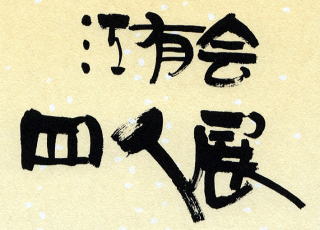 江有会
四人展